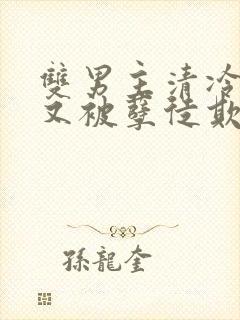 雙男主清冷
又被孽徒欺
孫龍奎